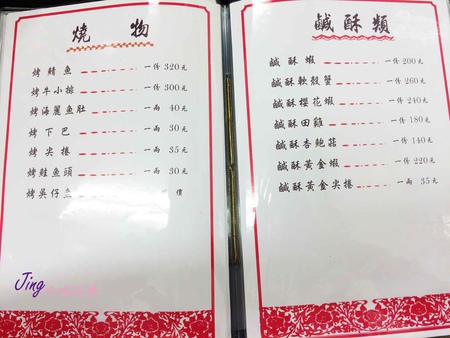 燒物
烤鯖魚 一件 320元
烤牛小排 一件 300元
烤海麗魚肚 一兩 40元
烤下巴 一兩 30元
烤尖捲 一兩 35元
烤鮭魚頭 一兩 30元
烤吳仔魚 價
Jing
鹹酥類
鹹酥蝦 一件 200元
鹹酥軟殼蟹 一件 260元
鹹酥櫻花蝦 一件 240元
鹹酥田雞 一件 180元
鹹酥杏鮑菇 一件 140元
鹹酥黃金蝦 一件 220元
鹹酥黃金尖捲 一兩 35元